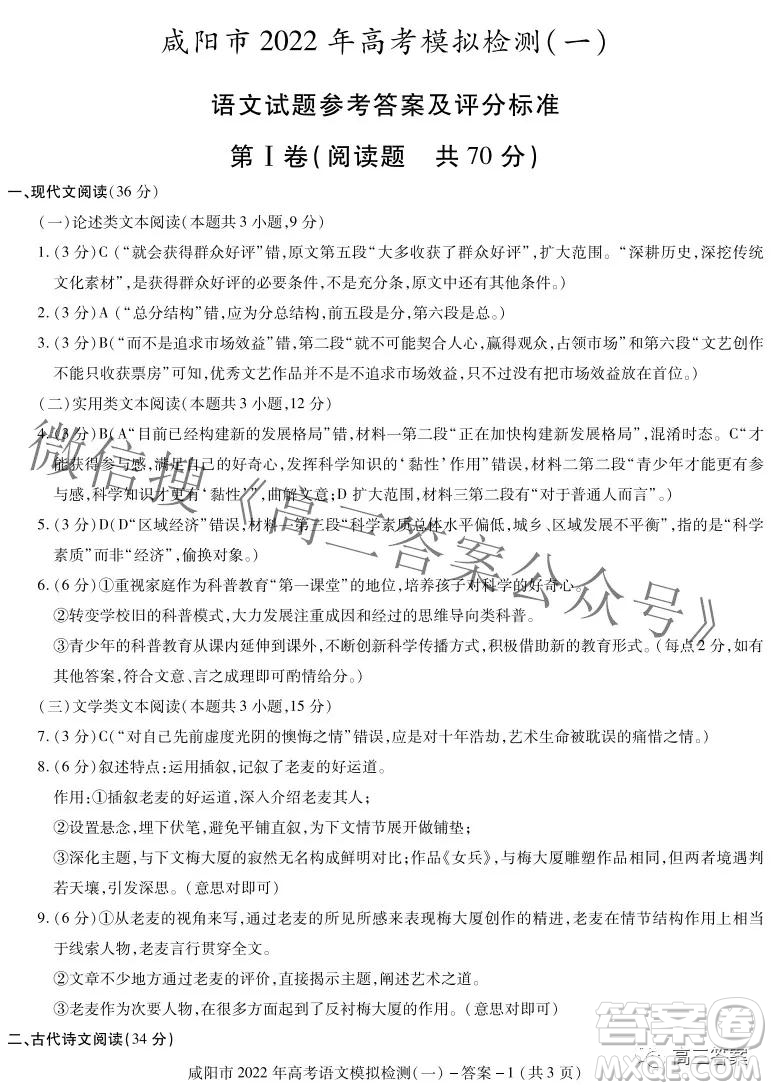 咸阳市 2022 年高考模拟检测(一)
语文试题参考答案及评分标准
第Ⅰ卷(阅读题 共 70 分)
一、现代文阅读(36 分)
(一)论述类文本阅读(本题共 3 小题,9 分)
1.(3 分)C(“就会获得群众好评”错,原文第五段“大多收获了群众好评”,扩大范围。“深耕历史,深挖传统
文化素材”,是获得群众好评的必要条件,不是充分条件,原文中还有其他条件。)
2.(3 分)A(“总分结构”错,应为分总结构,前五段是分,第六段是总。)
3.(3 分)B(“而不是追求市场效益”错,第二段“就不可能契合人心,赢得观众,占领市场”和第六段“文艺创作
不能只收获票房”可知,优秀文艺作品并不是不追求市场效益,只是没有把追求市场效益放在首位。)
(二)实用类文本阅读(本题共 3 小题,12 分)
4.(3 分)B(A“目前已经构建新的发展格局”错,材料一第二段“正在加快构建新发展格局”,混淆时态。C“才
能获得参与感,满足自己的好奇心,发挥科学知识的‘黏性’作用”错误,材料二第二段“青少年才能更有参
与感,科学知识才更有‘黏性’”,曲解文意;D 扩大范围,材料三第二段有“对于普通人而言”。)
5.(3 分)D(D“区域经济”错误,材料一第三段“科学素质总体水平偏低,城乡、区域发展不平衡”,指的是“科学
素质”而非“经济”,偷换对象。)
6.(6 分)①重视家庭作为科普教育“第一课堂”的地位,培养孩子对科学的好奇心。
②转变学校旧的科普模式,大力发展有重大原因和经过的思维导向类科普。
③青少年的科普教育从课内延伸到课外,不断创新科学传播方式,积极借助新的教育形式。(每点 2 分,如有
其他答案,符合文意、言之成理即可酌情给分。)
(三)文学类文本阅读(本题共 3 小题,15 分)
7.(3 分)C(“对自己先前虚度光阴的懊悔之情”错误,应是对十年浩劫,艺术生命被耽误的痛惜之情。)
8.(6 分)叙述特点:运用插叙,记叙了老麦的好运道。
作用:①插叙老麦的好运道,深入介绍老麦其人;
②设置悬念,埋下伏笔,避免平铺直叙,为下文情节展开做铺垫;
③深化主题,与下文梅大厦的寂然无名构成鲜明对比。作品《女兵》,与梅大厦雕塑作品相同,但两者境遇判
若天壤,引发深思。(意思对即可)
9.(6 分)①从老麦的视角来写,通过老麦的所见所感来表现梅大厦创作的精进,老麦在情节结构作用上相当
于线索人物,老麦言行贯穿全文。
②文章不少地方通过老麦的评价,直指主题,阐述艺术之道。
③老麦作为次要人物,有很多地方起了反衬梅大厦的作用。(意思对即可)
二、古代诗文阅读(34 分)
咸阳市 2022 年高考语文模拟检测(一)-答案-1(共 3 页)
微信搜《高三答案公众号》
高三答案
答案卷
MXQE.COM